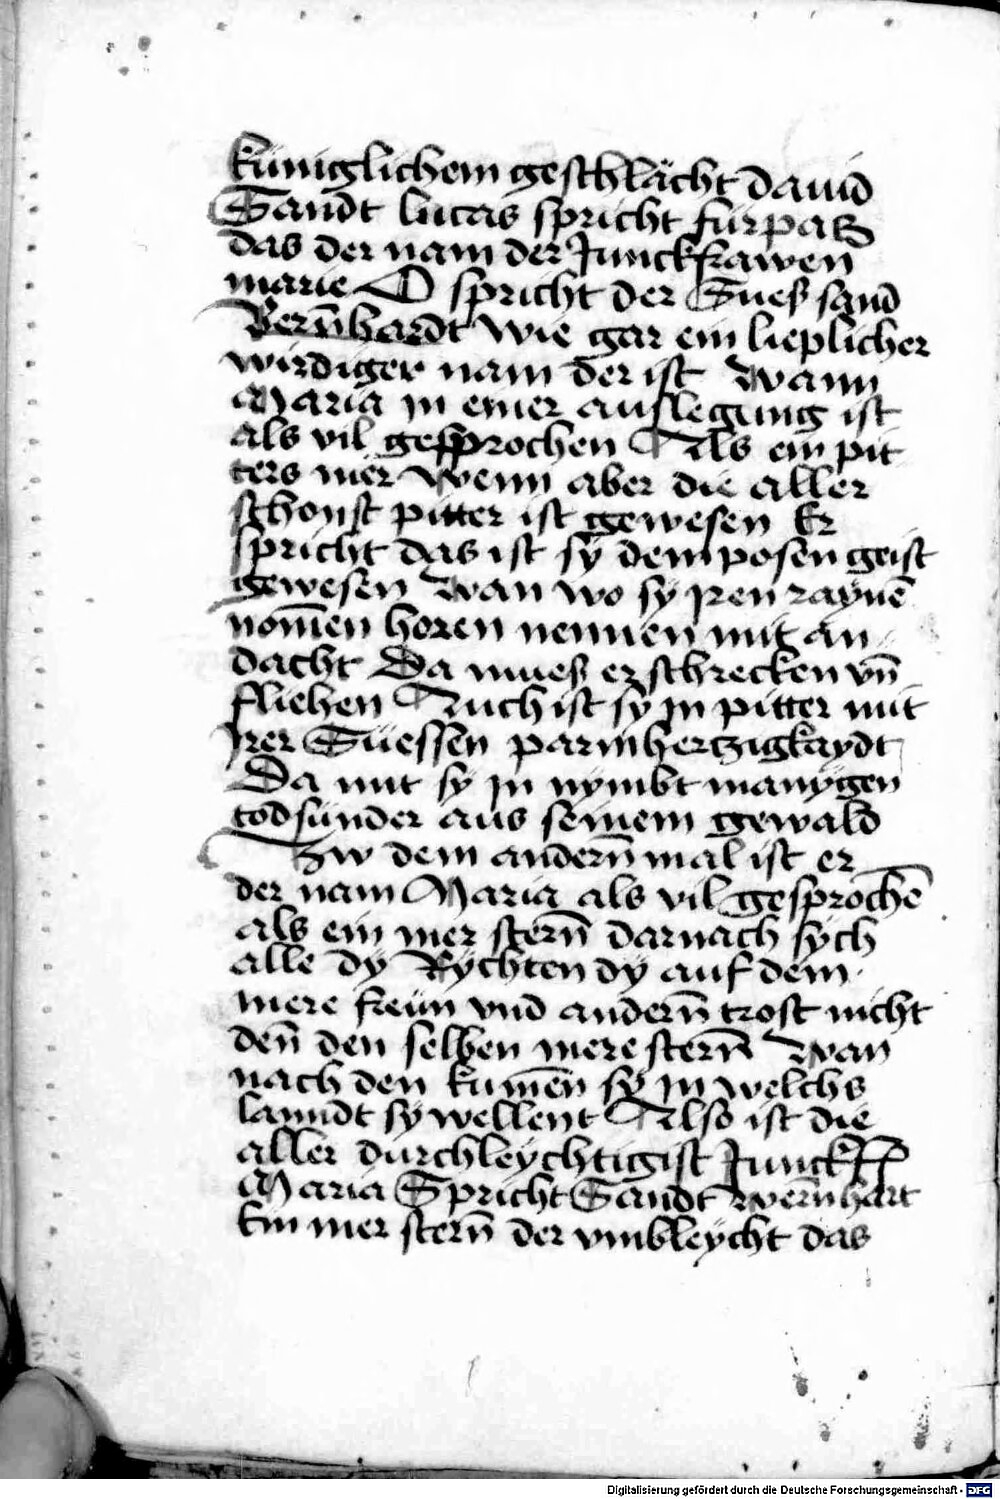 küniglichem geschlächt dauid
Sandt lucas spricht fürpaß
das der nam der Junckfrawen
marie O spricht der Sueß sand
Bern̄hardt wie gar ein lieplicher
wirdiger nam der ist wann
Maria jn einer auslegung ist
als vil gesprochen Als ein pit
ters mer wenn aber die aller
schonst pitter ist gewesen Er
spricht das ist sy dem posen geist
gewesen wan wo sy jren raynē
nom̄en horen nennen mit an
dacht Da mueß erschrecken vn̄
fliehen Auch ist sy jn pitter mit
jrer Süessen parmhertzigkaydt
Da mit sy jn nymbt manygen
todsünder aus seinem gewald
Zw dem andern̄ mal ist er
der nam Maria als vil gesprochē
als ein mer stern̄ darnach sych
alle dy Rychten dy auf dem
mere freün vnd andern̄ trost nicht
den̄ den selben mere stern̄ wan
nach den kum̄en sy jn welchs
lanndt sy wellent Also ist die
aller durchleychtigist Junckff
Maria Spricht Sandt wern̄hart
Ein mer stern̄ der vmbleycht das
Digitalisierung gefördert durch die Deutsche Forschungsgemeinschaft - DFG